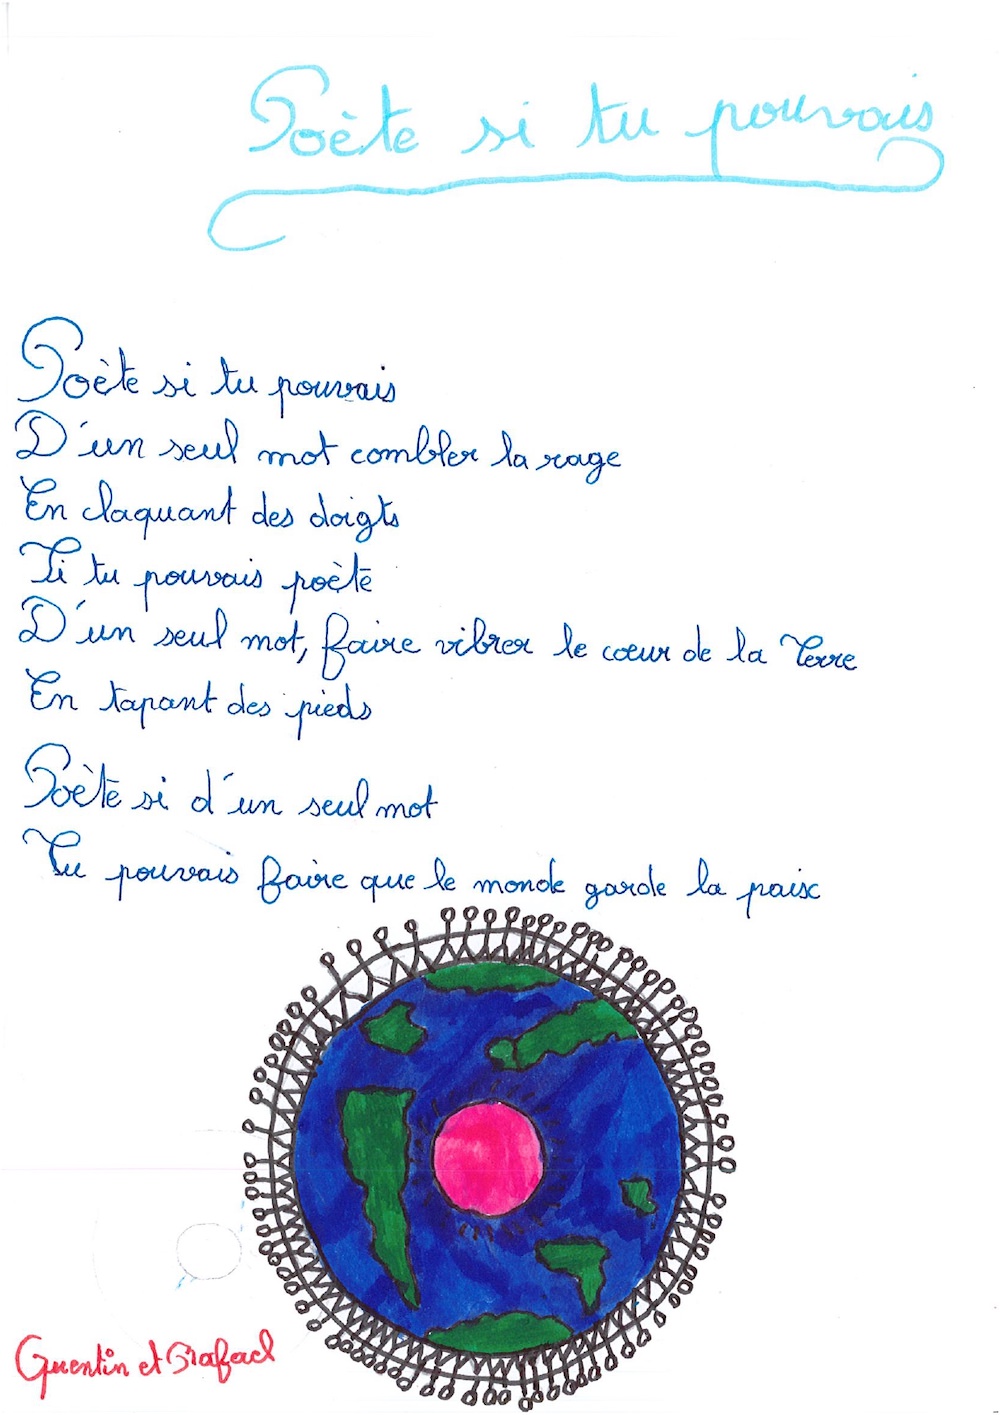 Poète si tu pouvais
Poète si tu pouvais
D'un seul mot combler la rage
En claquant des doigts
Si tu pouvais poète
D'un seul mot, faire vibrer le cœur de la Terre
En tapant des pieds
Poète si d'un seul mot
Tu pouvais faire que le monde garde la paix
Quentin et Rafael